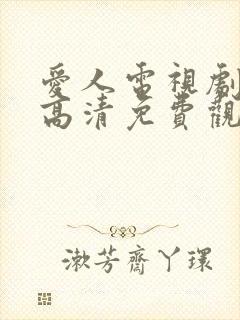 愛人電視劇
高清免費觀
漱芳齋丫環